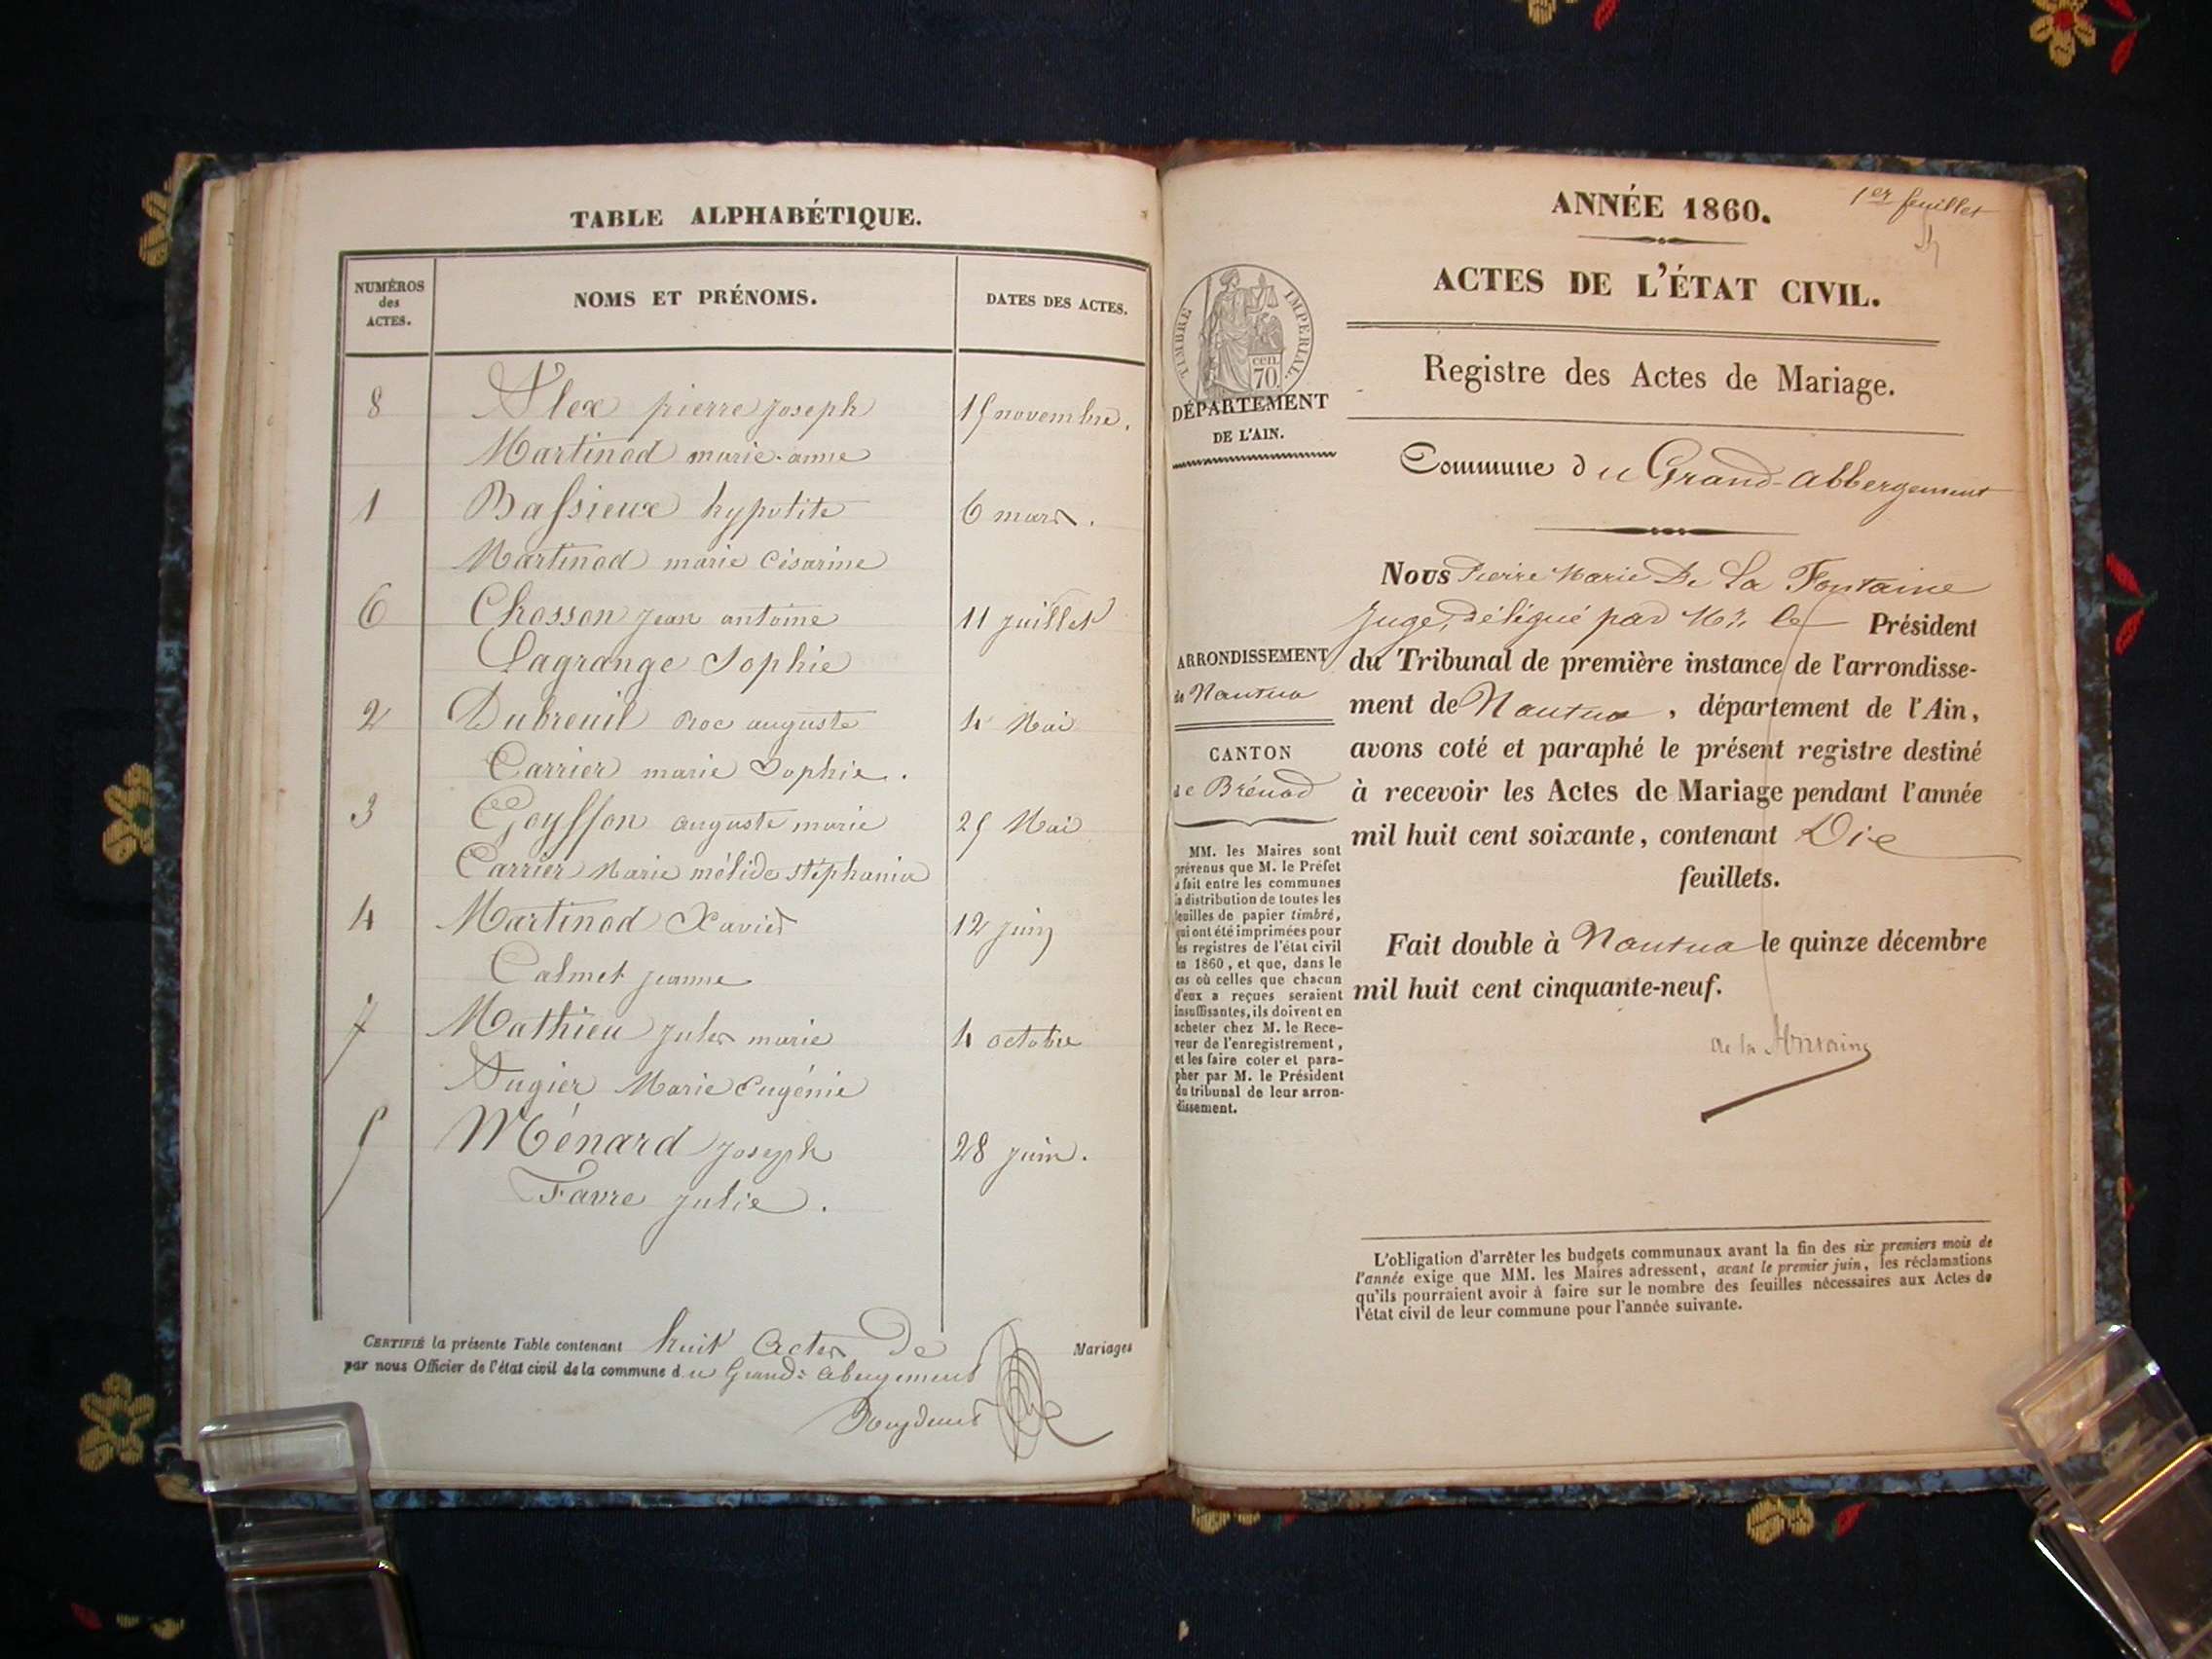 TABLE ALPHABÉTIQUE.
NUMÉROS des ACTES.
NOMS ET PRÉNOMS.
DATES DES ACTES.
8 Alex pierre joseph 15 novembre.
Martinod marie-anne
1 Bassieux hypolite 6 mars.
Martinod marie Césarine
6 Chosson jean antoine 11 juillet
Lagrange Sophie
2 Dubreuil Roc auguste 4 Mai
Carrier marie Sophie.
3 Goysson auguste marie 25 Mai
Carrier Marie mélide stéphanie
4 Martinod Xavier 12 juin
Calmet jeanne
7 Mathieu jules marie 4 octobre
Augier Marie Eugénie
5 Ménard joseph 28 juin.
Favre julie.
CERTIFIÉ la présente Table contenant huit Actes de Mariages
par nous Officier de l'état civil de la commune du Grand-abergement
ANNÉE 1860.
1er feuillet
ACTES DE L'ÉTAT CIVIL.
Registre des Actes de Mariage.
TIMBRE IMPERIAL.
cen. 70
DÉPARTEMENT
DE L'AIN.
Commune du Grand-abbergement
Nous Pierre Marie De La Fontaine
juge, délégué par Mr. le Président
du Tribunal de première instance de l'arrondisse-
ment de Nantua, département de l'Ain,
avons coté et paraphé le présent registre destiné
à recevoir les Actes de Mariage pendant l'année
mil huit cent soixante, contenant Dix
feuillets.
Fait double à Nantua le quinze décembre
mil huit cent cinquante-neuf.
de la Fontaine
ARRONDISSEMENT
de Nantua
CANTON
de Brénod
MM. les Maires sont
prévenus que M. le Préfet
a fait entre les communes
la distribution de toutes les
feuilles de papier timbré,
qui ont été imprimées pour
les registres de l'état civil
en 1860, et que, dans le
cas où celles que chacun
d'eux a reçues seraient
insuffisantes, ils doivent en
acheter chez M. le Rece-
veur de l'enregistrement,
et les faire coter et para-
pher par M. le Président
du tribunal de leur arron-
dissement.
L'obligation d'arrêter les budgets communaux avant la fin des six premiers mois de
l'année exige que MM. les Maires adressent, avant le premier juin, les réclamations
qu'ils pourraient avoir à faire sur le nombre des feuilles nécessaires aux Actes de
l'état civil de leur commune pour l'année suivante.